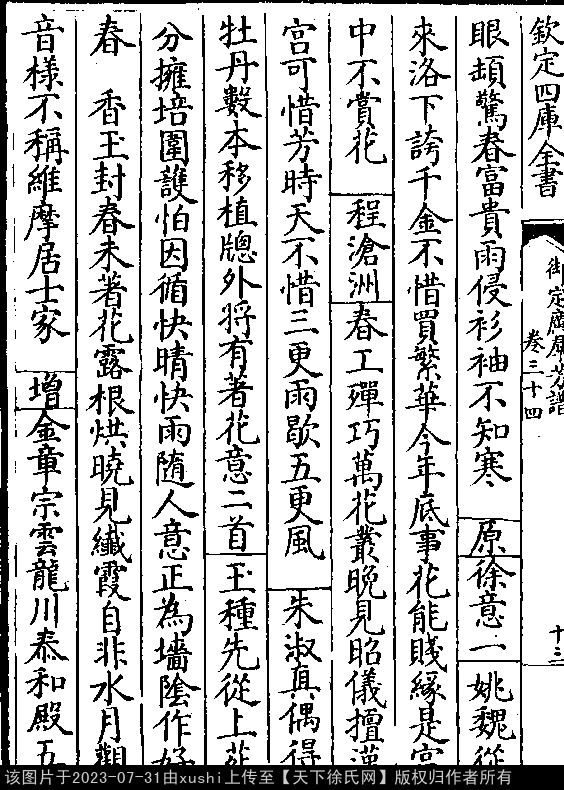 欽定四庫全書
御定廣羣芳譜
卷三十四
十三
眼頳驚春富貴雨侵衫袖不知寒 原徐意一 姚魏從
來洛下誇千金不惜買繁華今年底事花能賤緣是宮
中不賞花 程滄洲 春工殫巧萬花叢晚見昭儀擅漢
宮可惜芳時天不惜三更雨歇五更風 朱淑真偶得
牡丹數本移植牕外將有著花意二首 玉種先從上苑
分擁培圍護怕因循快晴快雨隨人意正為墻陰作好
春 香玉封春未著花露根烘曉見纖霞自非水月觀
音樣不稱維摩居士家 增金章宗雲龍川泰和殿五
该图片于2023-07-31由xushi上传至【天下徐氏网】版权归作者所有